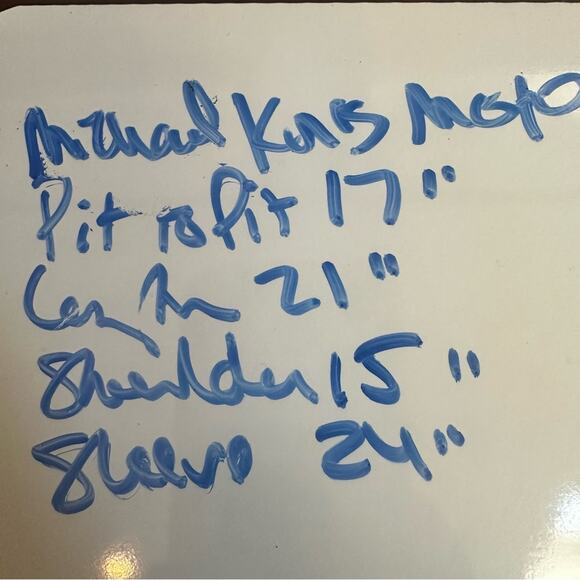 Michael Kors Moto
Pit to Pit 17"
Length 21"
Shoulder 15"
Sleeve 24"